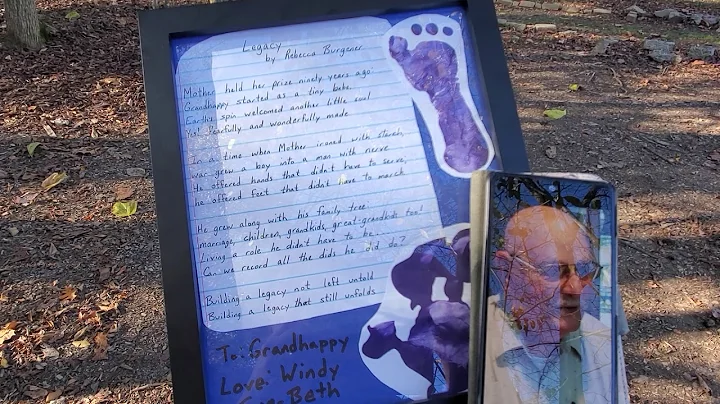 Legacy
by Rebecca Burgener
Mother held her prize ninety years ago.
Grandhappy started as a tiny babe.
Earth's spin welcomed another little soul
Yet fearfully and wonderfully made
In a time when Mother ironed with starch,
war grew a boy into a man with nerve
He offered hands that didn't have to serve,
he offered feet that didn't have to march
He grew along with his family tree
marriage, children, grandkids, great-grandkids too!
Living a role he didn't have to be.
Can we record all the dids he did do?
Building a legacy not left untold
Building a legacy that still unfolds
To: Grandhappy
Love: Windy
Beth